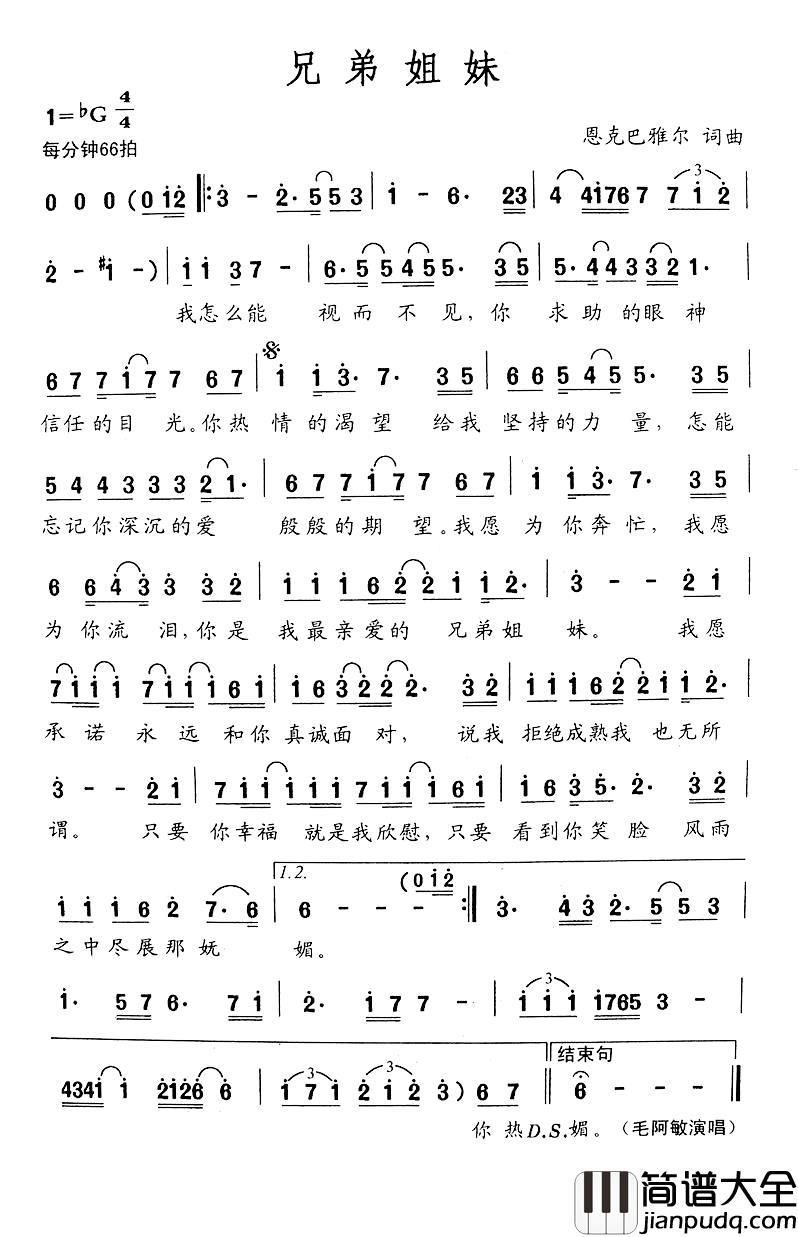 兄弟姐妹
1=♭G 4/4
恩克巴雅尔 词曲
每分钟66拍
0 0 0 (0 i̇ 2̇ ‖: 3̇ - 2̇· 5 5 5 3 | i̇ - 6· 2 3 | 4 4 i̇ 7 6 7 7 i̇ 2̇ |
2̇ - #i̇ - ) | i̇ i̇ 3 7 - | 6· 5 5 4 5 5· 3 5 | 5· 4 4 3 3 2 1· |
我怎么能 视而不见，你 求助的眼神
6 7 7 i̇ 7 7 6 7 | i̇ i̇ 3̇· 7· 3 5 | 6 6 5 4 5 5· 3 5 |
信任的目光。你热情的渴望 给我坚持的力量，怎能
5 4 4 3 3 3 2 1· | 6 7 7 i̇ 7 7 6 7 | i̇ i̇ 3̇· 7· 3 5 |
忘记你深沉的爱 殷殷的期望。我愿为你奔忙，我愿
6 6 4̇ 3̇ 3̇ 3̇ 2̇ | i̇ i̇ i̇ 6 2̇ 2̇ i̇ i̇ i̇ 2̇· | 3̇ - - 2̇ i̇ |
为你流泪，你是我最亲爱的 兄弟姐妹。 我愿
7 i̇ i̇ i̇ 7 i̇ i̇ i̇ 6 i̇ | i̇ 6 3̇ 2̇ 2̇ 2̇· 3̇ 2̇ | i̇ i̇ i̇ 6 2̇ 2̇ i̇ i̇ i̇ 2̇· |
承诺永远和你真诚面对，说我拒绝成熟我也无所
3̇ - - 2̇ i̇ | 7 i̇ i̇ i̇ i̇ i̇ 7 i̇ i̇ i̇ 6 i̇ | i̇ 6 3̇ 5̇· 2̇· 3̇ 2̇ |
谓。 只要你幸福就是我欣慰，只要看到你笑脸风雨
1.2.
(0 i̇ 2̇
i̇ i̇ i̇ 6 2̇ 7· 6 | 6 - - - :‖ 3̇· 4̇ 3̇ 2̇· 5 5 5 3 |
之中尽展那妩媚。
i̇· 5 7 6· 7 i̇ | 2̇· i̇ 7 7 - | i̇ i̇ i̇ i̇ 7 6 5 3 - |
结束句
4 3 4 i̇ i̇ 2̇ i̇ 2̇ 6 6 | i̇ 7 i̇ 2̇ i̇ 2̇ 3̇ ) 6 7 ‖ 6 - - - ‖
你热D.S.媚。（毛阿敏演唱）
简谱大全
jianpudq.com